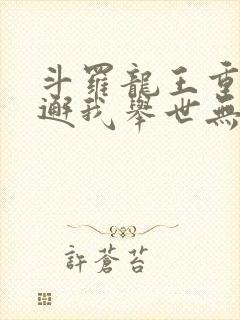 斗羅龍王重
邂我舉世無
許蒼苔